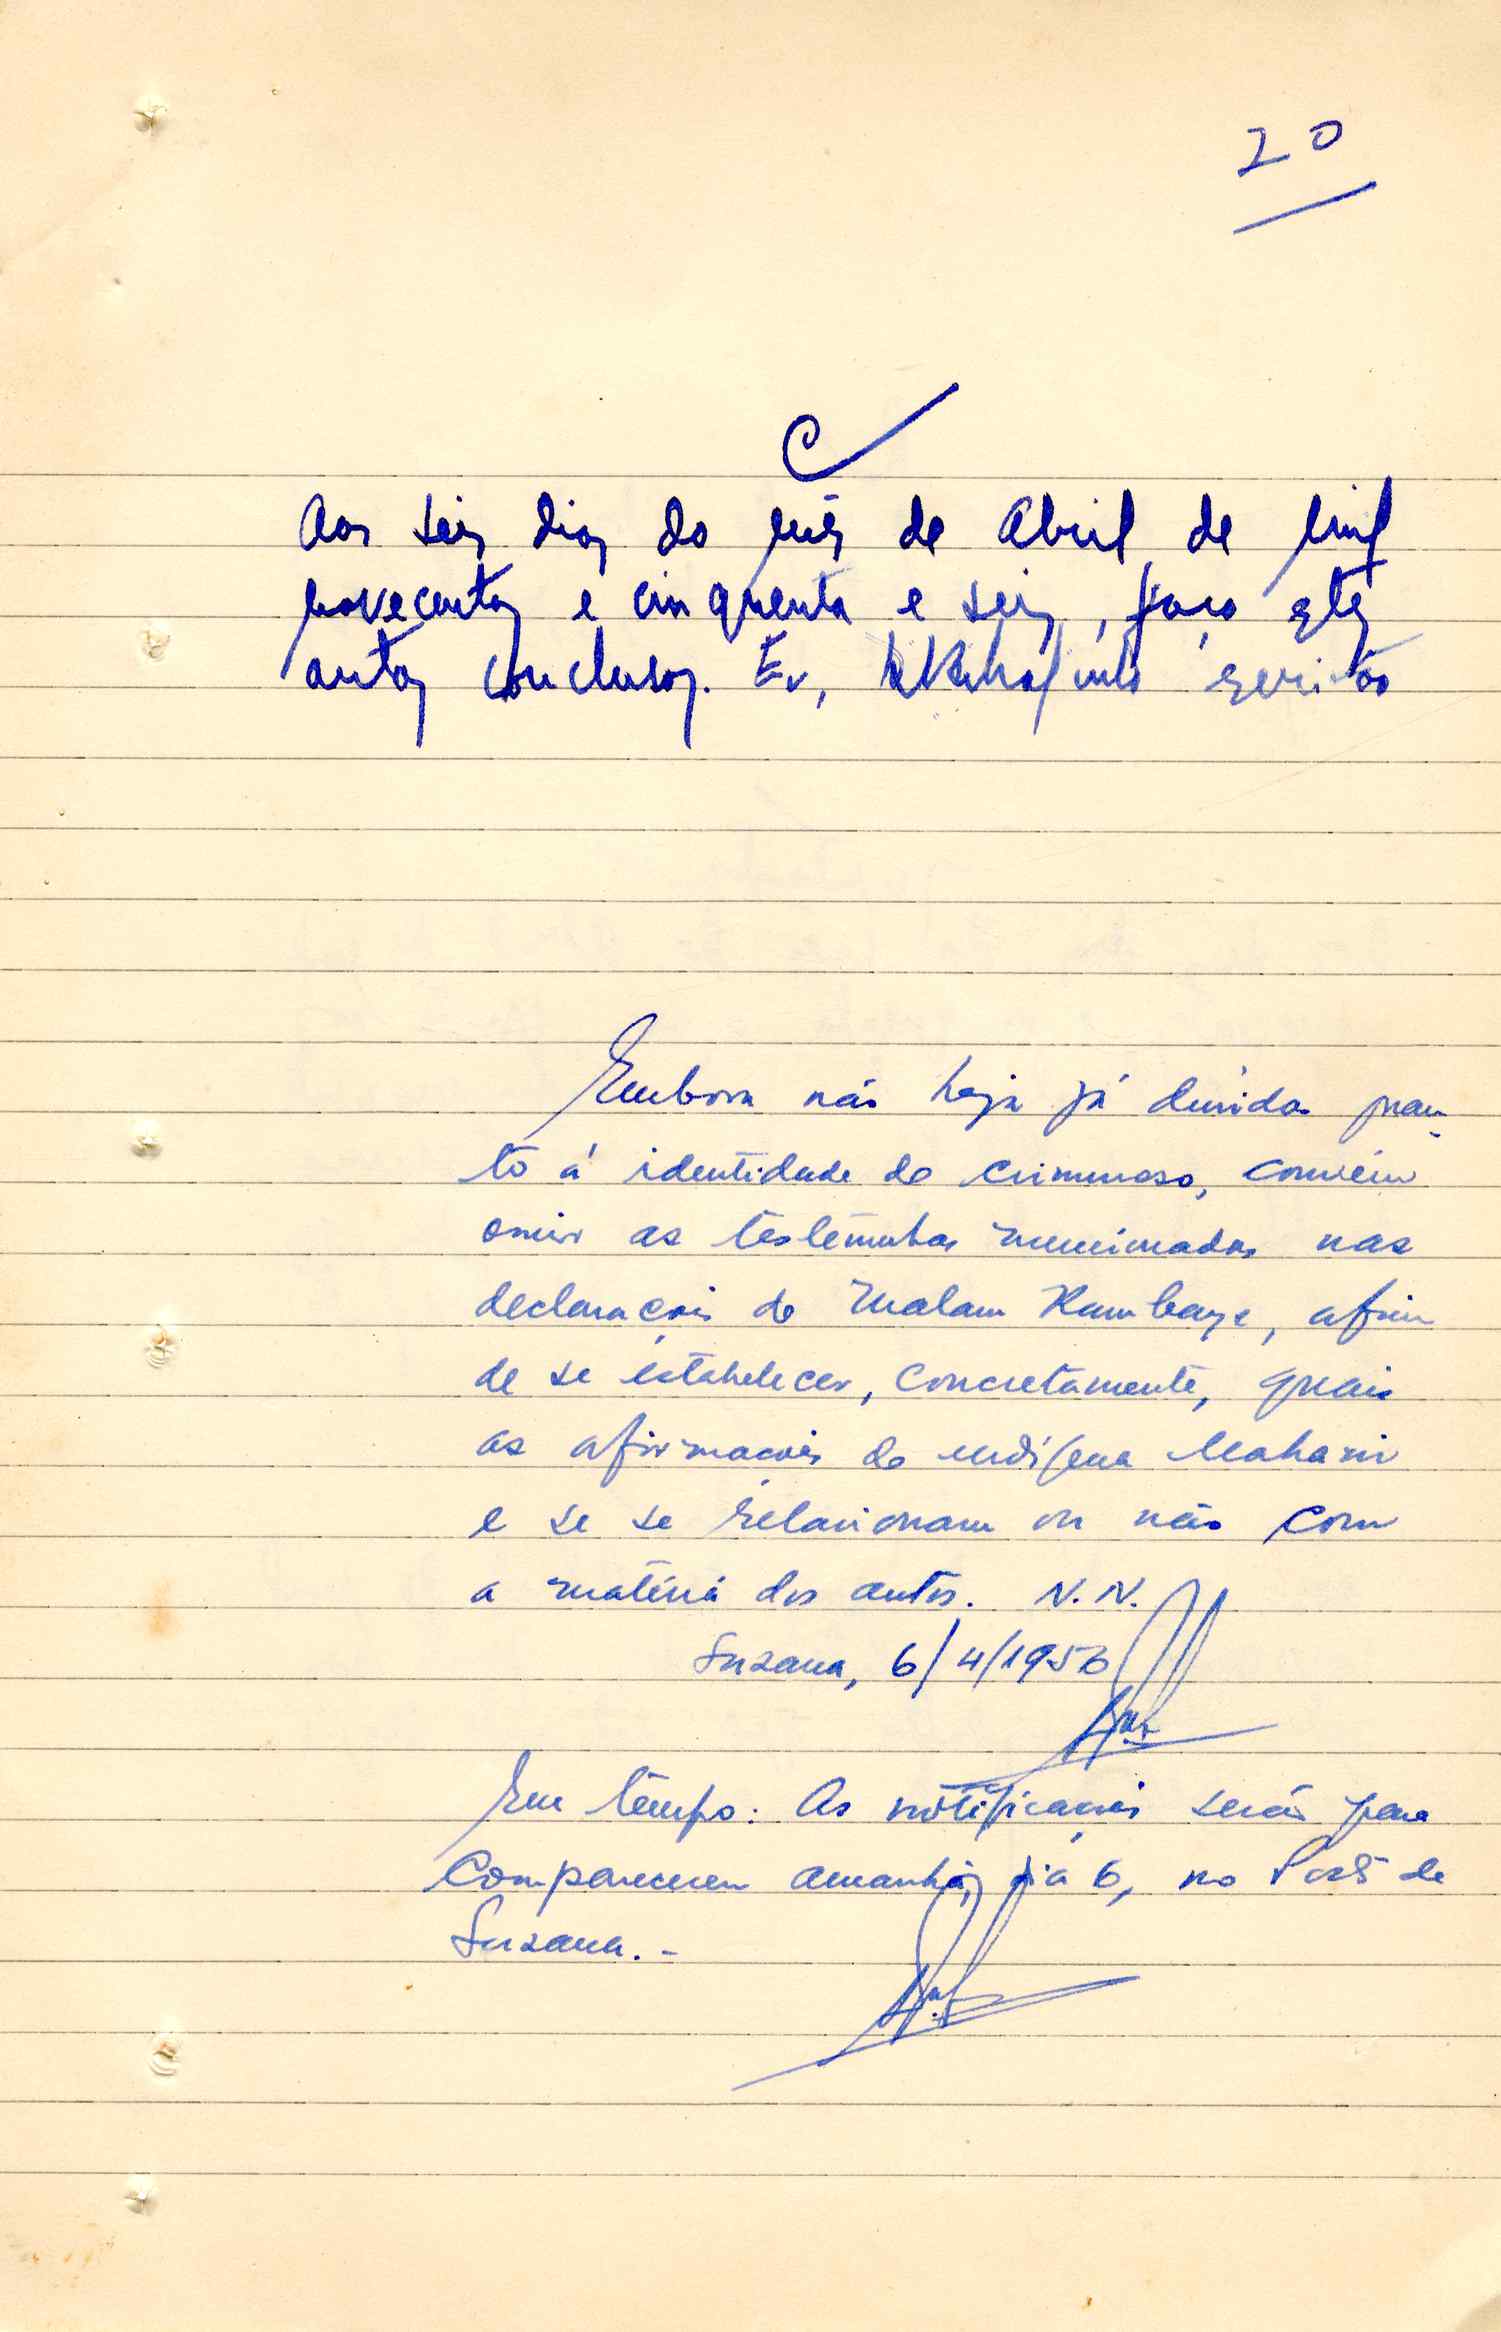 20
C
Aos seis dias do mês de Abril de mil
novecentos e cinquenta e seis, faço estes
autos conclusos. Eu, escrivão
Embora não haja já dúvidas quan-
to á identidade do criminoso, convém
ouvir as testemunhas mencionadas nas
declarações de Malam Kambaye, afim
de se estabelecer, concretamente, quais
as afirmações do indígena
e se se relacionam ou não com
a matéria dos autos. N.N.
Suzana, 6/4/1956
Em tempo: As notificações serão para
comparecerem amanhã, dia 6, no Posto de
Suzana.-